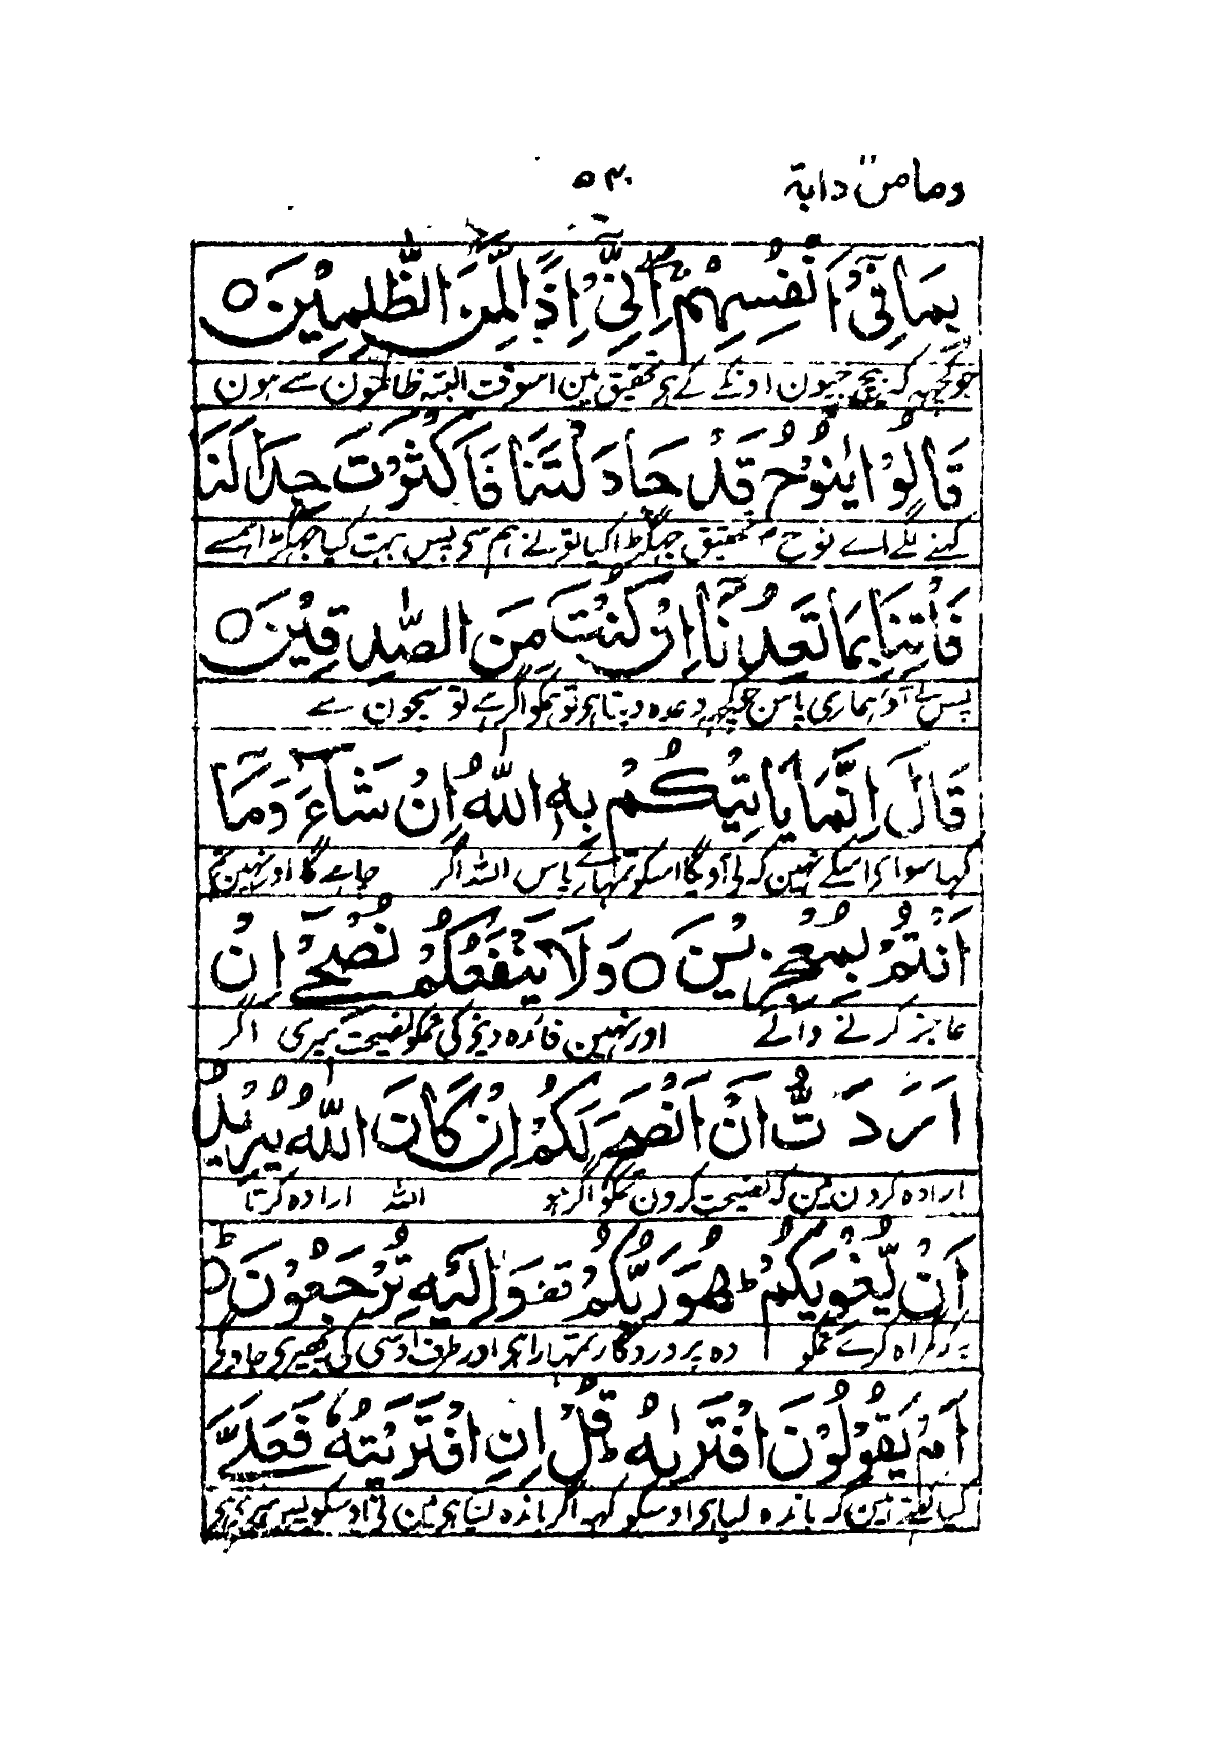 وما من دابة ۵۳۰
بِمَا فِيْٓ اَنْفُسِهِمْ ۚۖ اِنِّيْٓ اِذًا لَّمِنَ الظّٰلِمِيْنَ ○
جو کچھ کہ بیچ جیون اونکے کے ہی تحقیق مین اسوقت البتہ ظالمون سے ہون
قَالُوْا يٰنُوْحُ قَدْ جَادَلْتَنَا فَاَكْثَرْتَ جِدَالَنَا
کہنے لگے اے نوح تحقیق جھگڑا کیا تو نے ہم سی پس بہت کیا جھگڑا ہمسے
فَاْتِنَا بِمَا تَعِدُنَآ اِنْ كُنْتَ مِنَ الصّٰدِقِيْنَ ○
پس لے آ ہماری پاس جو کچھ وعدہ دیتا ہی تو ہمکو اگر ہے تو سچون سے
قَالَ اِنَّمَا يَاْتِيْكُمْ بِهِ اللّٰهُ اِنْ شَآءَ وَمَآ
کہا سوای اسکے نہین کہ لی آویگا اسکو تمہارے پاس اللہ اگر چاہے گا اور نہین تم
اَنْتُمْ بِمُعْجِزِيْنَ ○ وَلَا يَنْفَعُكُمْ نُصْحِيْٓ اِنْ
عاجز کرنے والے اور نہین فائدہ دیگی تمکو نصیحت میری اگر
اَرَدْتُّ اَنْ اَنْصَحَ لَكُمْ اِنْ كَانَ اللّٰهُ يُرِيْدُ
ارادہ کرون مین کہ نصیحت کرون تمکو اگر ہو اللہ ارادہ کرتا
اَنْ يُّغْوِيَكُمْ ؕ هُوَ رَبُّكُمْ وَاِلَيْهِ تُرْجَعُوْنَ ○ؕ
یہ کہ گمراہ کرے تمکو وہ پروردگار تمہارا ہی اور طرف اوسی کی پھیری جاوگی
اَمْ يَقُوْلُوْنَ افْتَرٰىهُ ؕ قُلْ اِنِ افْتَرَيْتُهٗ فَعَلَيَّ
کیا کہتے ہین کہ باندہ لیا ہی اوسکو کہہ اگر باندہ لیا ہی مین نی اوسکو پس